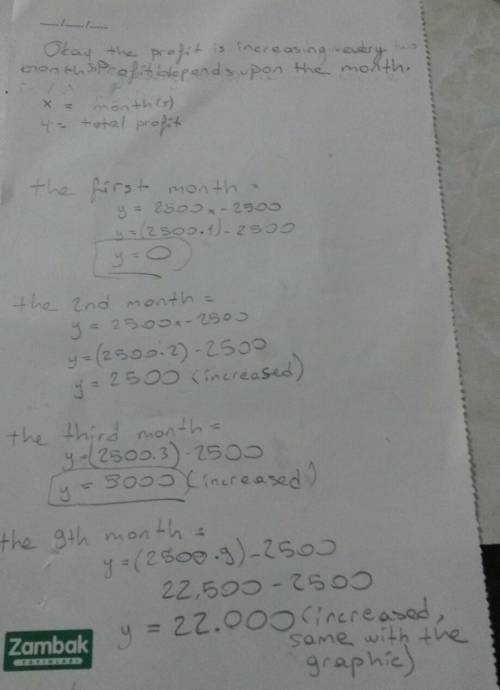 Okay the profit is increasing every two
months. Profit depends upon the month.
x = month(s)
y = total profit
the first month =
y = 2500x - 2500
y = (2500.1) - 2500
y = 0
the 2nd month =
y = 2500x - 2500
y = (2500.2) - 2500
y = 2500 (increased)
the third month =
y = (2500.3) - 2500
y = 5000 (increased)
the 9th month =
y = (2500.9) - 2500
22,500 - 2500
y = 22.000 (increased,
same with the
graphic)
Zambak
YAYINLARI